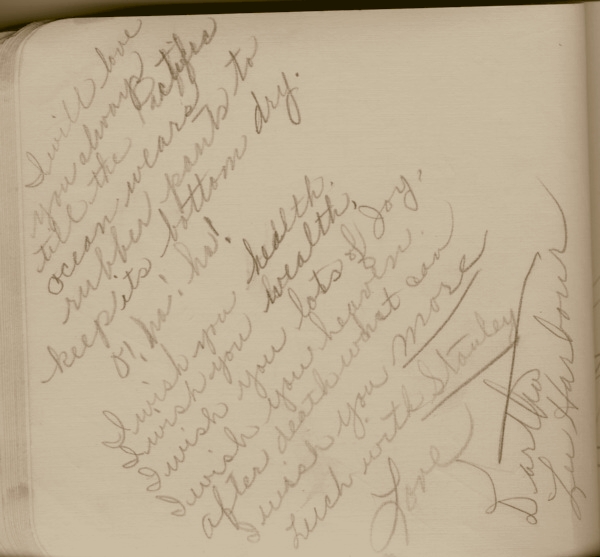 I will love
you always
till the Pacific
ocean wears
rubber pants to
keep its bottom dry.
O! ha! ha!
I wish you health,
I wish you wealth,
I wish you lots of joy,
I wish you heaven
after death what can
I wish you more
Luck with Stanley
Love
Bartha
Lee Harbour